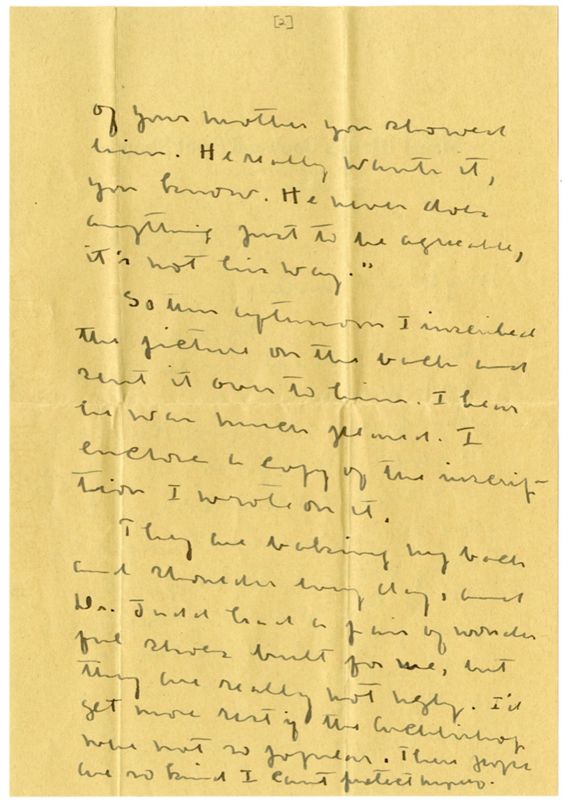 [2]
of your mother you showed
him. He really wants it,
you know. He never does
anything just to be agreeable,
it's not his way."
So this afternoon I inscribed
the picture on the back and
sent it over to him. I hear
he was much pleased. I
enclose a copy of the inscrip-
tion I wrote on it.
They are baking my back
and shoulder every day, and
Dr. Judd had a pair of wonder
ful shoes built for me, but
they are really not ugly. I'd
get more rest if the Archbishop
were not so popular. These people
are so kind I can't protect myself.